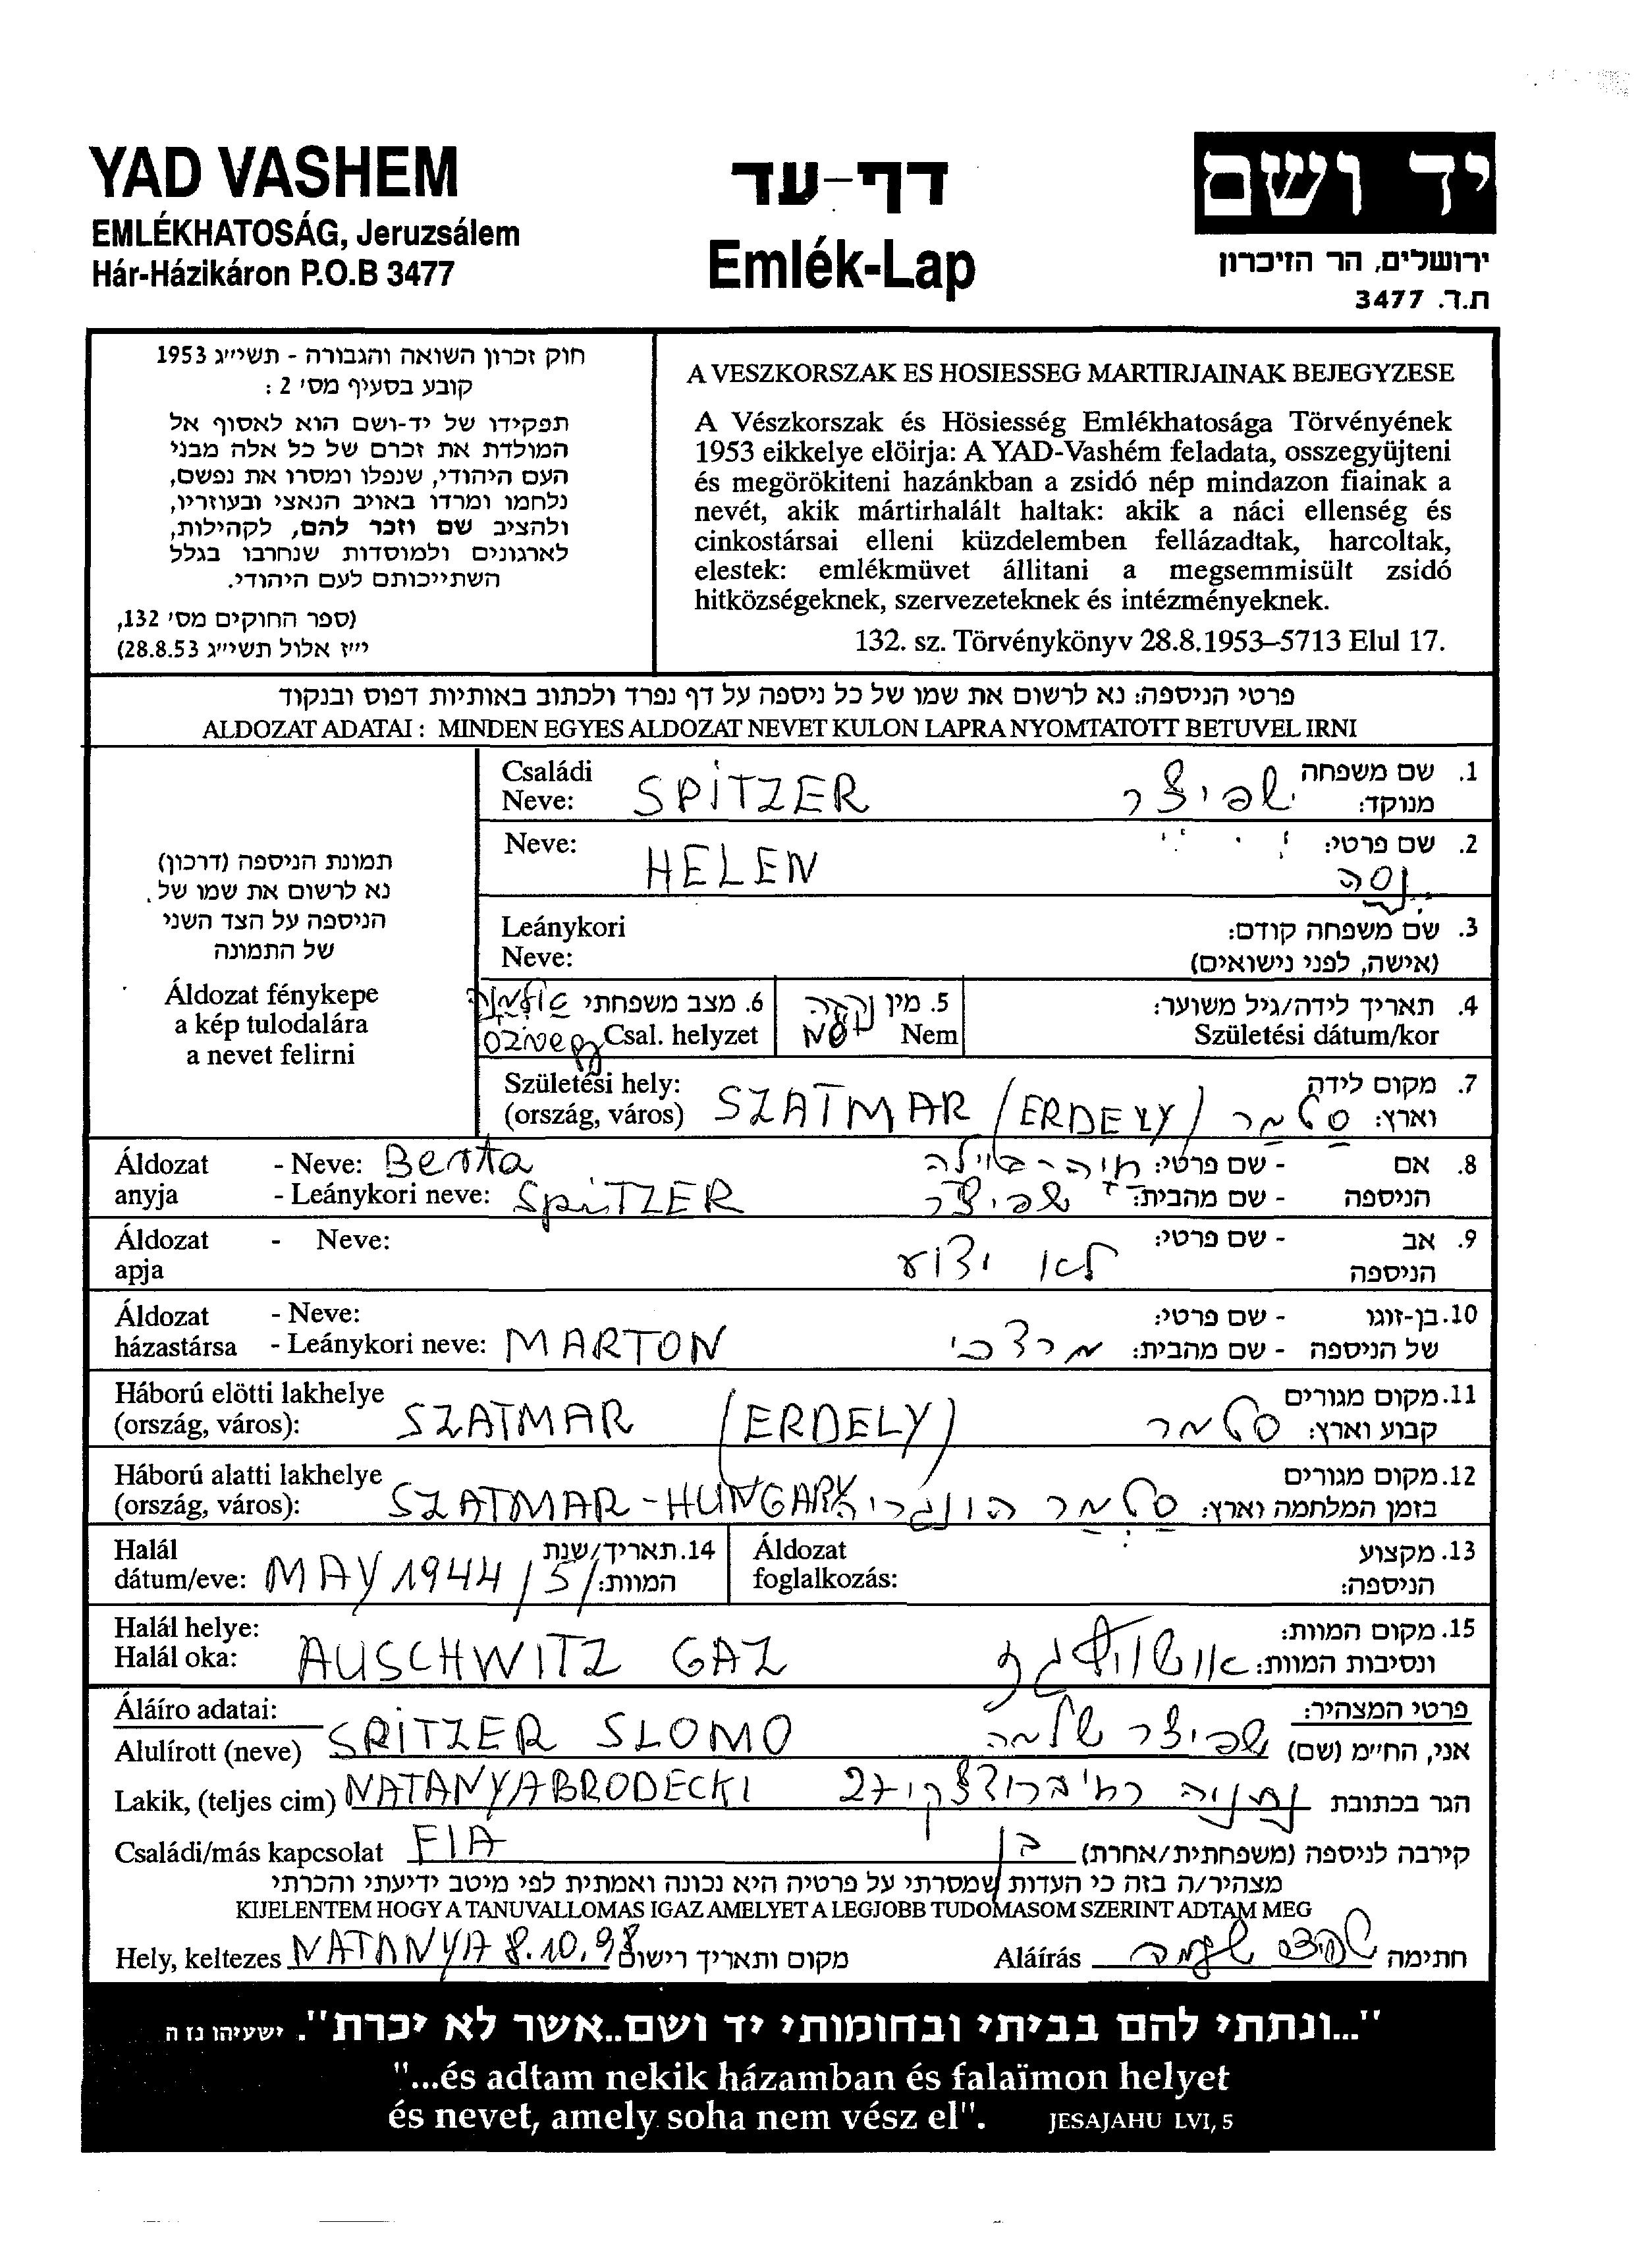 YAD VASHEM
EMLÉKHATOSÁG, Jeruzsálem
Hár-Házikáron P.O.B 3477
דף-עד
Emlék-Lap
יד ושם
ירושלים, הר הזיכרון
ת.ד. 3477
חוק זכרון השואה והגבורה - תשי״ג 1953
קובע בסעיף מס׳ 2 :
תפקידו של יד-ושם הוא לאסוף אל
המולדת את זכרם של כל אלה מבני
העם היהודי, שנפלו ומסרו את נפשם,
נלחמו ומרדו באויב הנאצי ובעוזריו,
ולהציב שם וזכר להם, לקהילות,
לארגונים ולמוסדות שנחרבו בגלל
השתייכותם לעם היהודי.
(ספר החוקים מס׳ 132,
י״ז אלול תשי״ג 28.8.53)
A VESZKORSZAK ES HOSIESSEG MARTIRJAINAK BEJEGYZESE
A Vészkorszak és Hösiesség Emlékhatosága Törvényének
1953 eikkelye elöirja: A YAD-Vashém feladata, osszegyüjteni
és megörökiteni hazánkban a zsidó nép mindazon fiainak a
nevét, akik mártirhalált haltak: akik a náci ellenség és
cinkostársai elleni küzdelemben fellázadtak, harcoltak,
elestek: emlékmüvet állitani a megsemmisült zsidó
hitközségeknek, szervezeteknek és intézményeknek.
132. sz. Törvénykönyv 28.8.1953–5713 Elul 17.
פרטי הניספה: נא לרשום את שמו של כל ניספה על דף נפרד ולכתוב באותיות דפוס ובנקוד
ALDOZAT ADATAI : MINDEN EGYES ALDOZAT NEVET KULON LAPRA NYOMTATOTT BETUVEL IRNI
תמונת הניספה (דרכון)
נא לרשום את שמו של
הניספה על הצד השני
של התמונה
Áldozat fénykepe
a kép tulodalára
a nevet felirni
Családi SPITZER שפיצר 1. שם משפחה
Neve: מנוקד:
Neve: HELEN 2. שם פרטי:
Leánykori 3. שם משפחה קודם:
Neve: (אישה, לפני נישואים)
4. תאריך לידה/גיל משוער: 5. מין נקבה 6. מצב משפחתי אלמנה
Születési dátum/kor Nem Nő Csal. helyzet özvegy
Születési hely: SZATMAR (ERDELY) סטמר 7. מקום לידה
(ország, város) וארץ:
Áldozat - Neve: Berta - שם פרטי: 8. אם
anyja - Leánykori neve: SpiTZER שפיצר - שם מהבית: הניספה
Áldozat - Neve: לא ידוע - שם פרטי: 9. אב
apja הניספה
Áldozat - Neve: - שם פרטי: 10. בן-זוגו
házastársa - Leánykori neve: MARTON מרדכי - שם מהבית: של הניספה
Háború elötti lakhelye SZATMAR (ERDELY) סטמר 11. מקום מגורים
(ország, város): קבוע וארץ:
Háború alatti lakhelye SZATMAR-HUNGARY סטמר הונגריה 12. מקום מגורים
(ország, város): בזמן המלחמה וארץ:
Halál MAY 1944 /5/ 14. תאריך/שנת Áldozat 13. מקצוע
dátum/eve: המוות: foglalkozás: הניספה:
Halál helye: AUSCHWITZ GAZ 15. מקום המוות:
Halál oka: ונסיבות המוות:
Áláíro adatai: פרטי המצהיר:
Alulírott (neve) SPITZER SLOMO שפיצר שלמה אני, הח״מ (שם)
Lakik, (teljes cim) NATANYA BRODECKI נתניה רח' ברודצקי 27 הגר בכתובת
Családi/más kapcsolat FIA בן קירבה לניספה (משפחתית/אחרת)
מצהיר/ה בזה כי העדות שמסרתי על פרטיה היא נכונה ואמתית לפי מיטב ידיעתי והכרתי
KIJELENTEM HOGY A TANUVALLOMAS IGAZ AMELYET A LEGJOBB TUDOMASOM SZERINT ADTAM MEG
Hely, keltezes NATANYA 8.10.98 מקום ותאריך רישום Aláírás שפיצר שלמה חתימה
"...ונתתי להם בביתי ובחומותי יד ושם..אשר לא יכרת". ישעיהו נז ה
"...és adtam nekik házamban és falaïmon helyet
és nevet, amely soha nem vész el". JESAJAHU LVI, 5